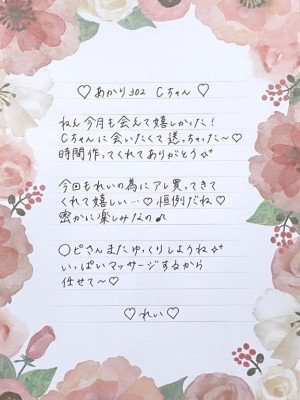 ♡ あかり302 Cちゃん ♡
ねえ今月も会えて嬉しかった！
Cちゃんに会いたくて送っちゃた〜♡
時間作ってくれてありがとう✨
今回もれいの為にアレ買ってきて
くれて嬉しい…♡恒例だね♡
密かに楽しみなの♪
〇ピさんまたゆっくりしようね✨
いっぱいマッサージするから
任せて〜♡
♡ れい ♡